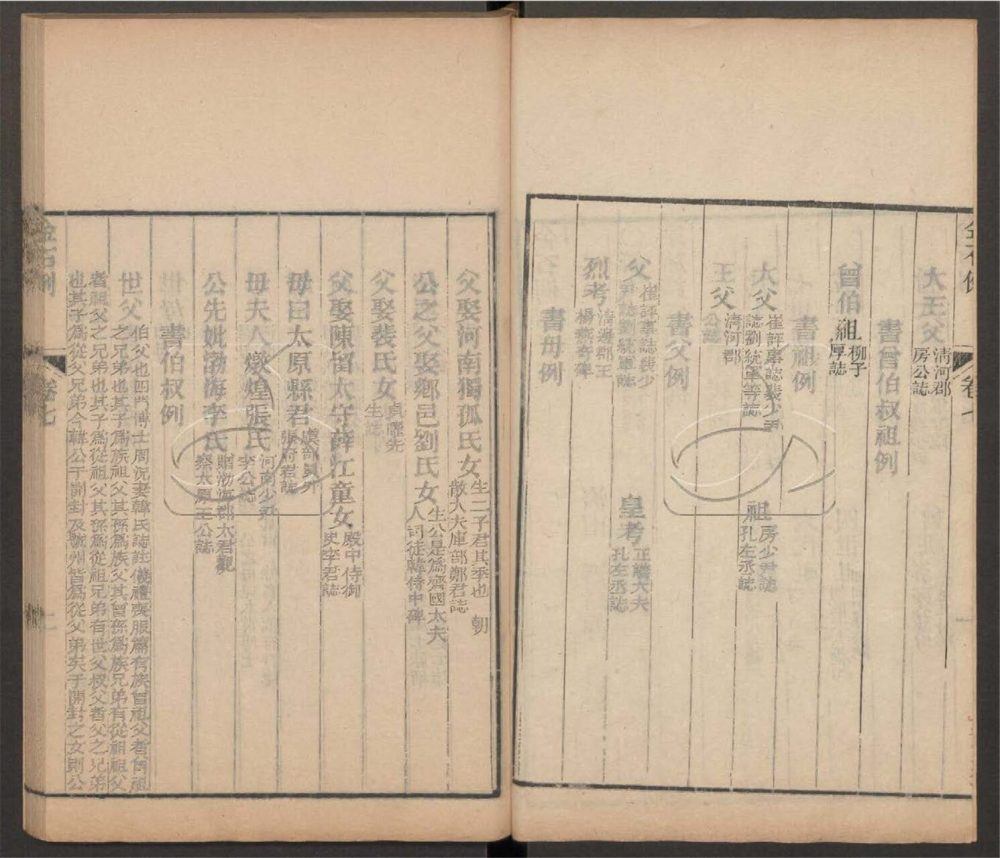 大王父 清河郡房公誌
書曾伯叔祖例
曾伯祖 柳子厚誌
書祖例
大父 崔評事誌裴少尹誌劉統軍等誌 祖 房少尹誌孔左丞誌
王父 清河郡公誌
書父例
父 崔評事誌裴少尹誌劉統軍誌 皇考 正議大夫孔左丞誌
烈考 清邊郡王楊燕奇碑
書母例
金石例
卷七
父娶河南獨孤氏女 生二子君其季也 朝散大夫庫部鄭君誌
公之父娶鄉邑劉氏女 生公是爲齊國太夫人 司徒韓侍中碑
父娶裴氏女 貞曜先生誌
父娶陳留太守薛江童女 殿中侍御史李君誌
母曰太原縣君 虞部員外張府君誌
母夫人燉煌張氏 河南少尹李公誌
公先妣渤海李氏 贈渤海郡太君觀察太原王公誌
書伯叔例
世父 伯父也四門博士周況妻韓氏誌註儀禮喪服篇有族曾祖父者曾祖
之兄弟也其子爲族祖父其孫爲族父其曾孫爲族兄弟有從祖祖父
者祖父之兄弟也其子爲從祖父其孫爲從祖兄弟有世父叔父者父之兄弟
也其子爲從父兄弟今韓公于開封及虢州皆爲從父弟矣于開封之女則公
金石例
卷七